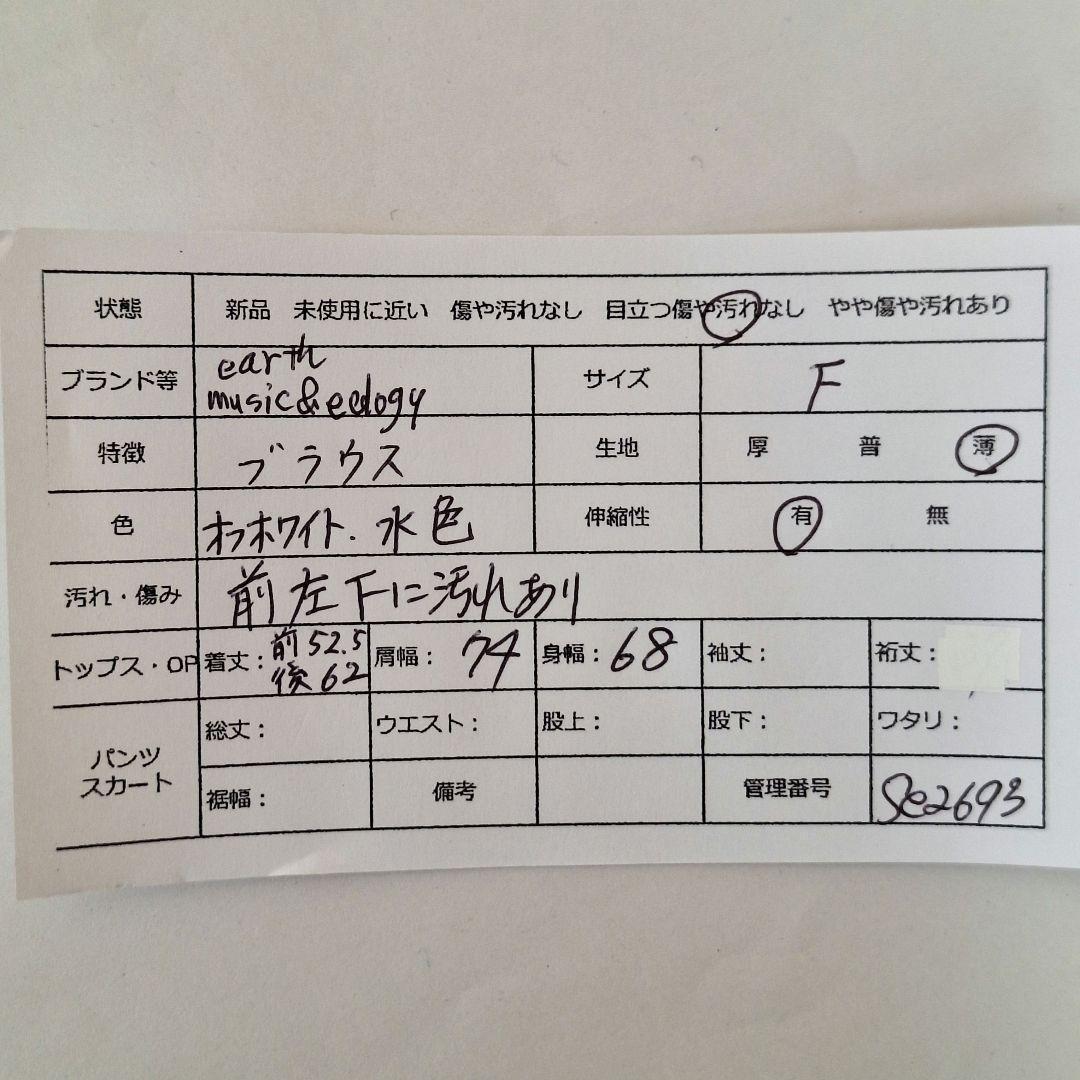 状態 新品 未使用に近い 傷や汚れなし 目立つ傷や汚れなし やや傷や汚れあり
ブランド等 earth music&ecology サイズ F
特徴 ブラウス 生地 厚 普 薄
色 オフホワイト. 水色 伸縮性 有 無
汚れ・傷み 前左下に汚れあり
トップス・OP 着丈：前52.5 後62 肩幅：74 身幅：68 袖丈： 裄丈：
パンツ スカート 総丈： ウエスト： 股上： 股下： ワタリ：
裾幅： 備考 管理番号 Se2693